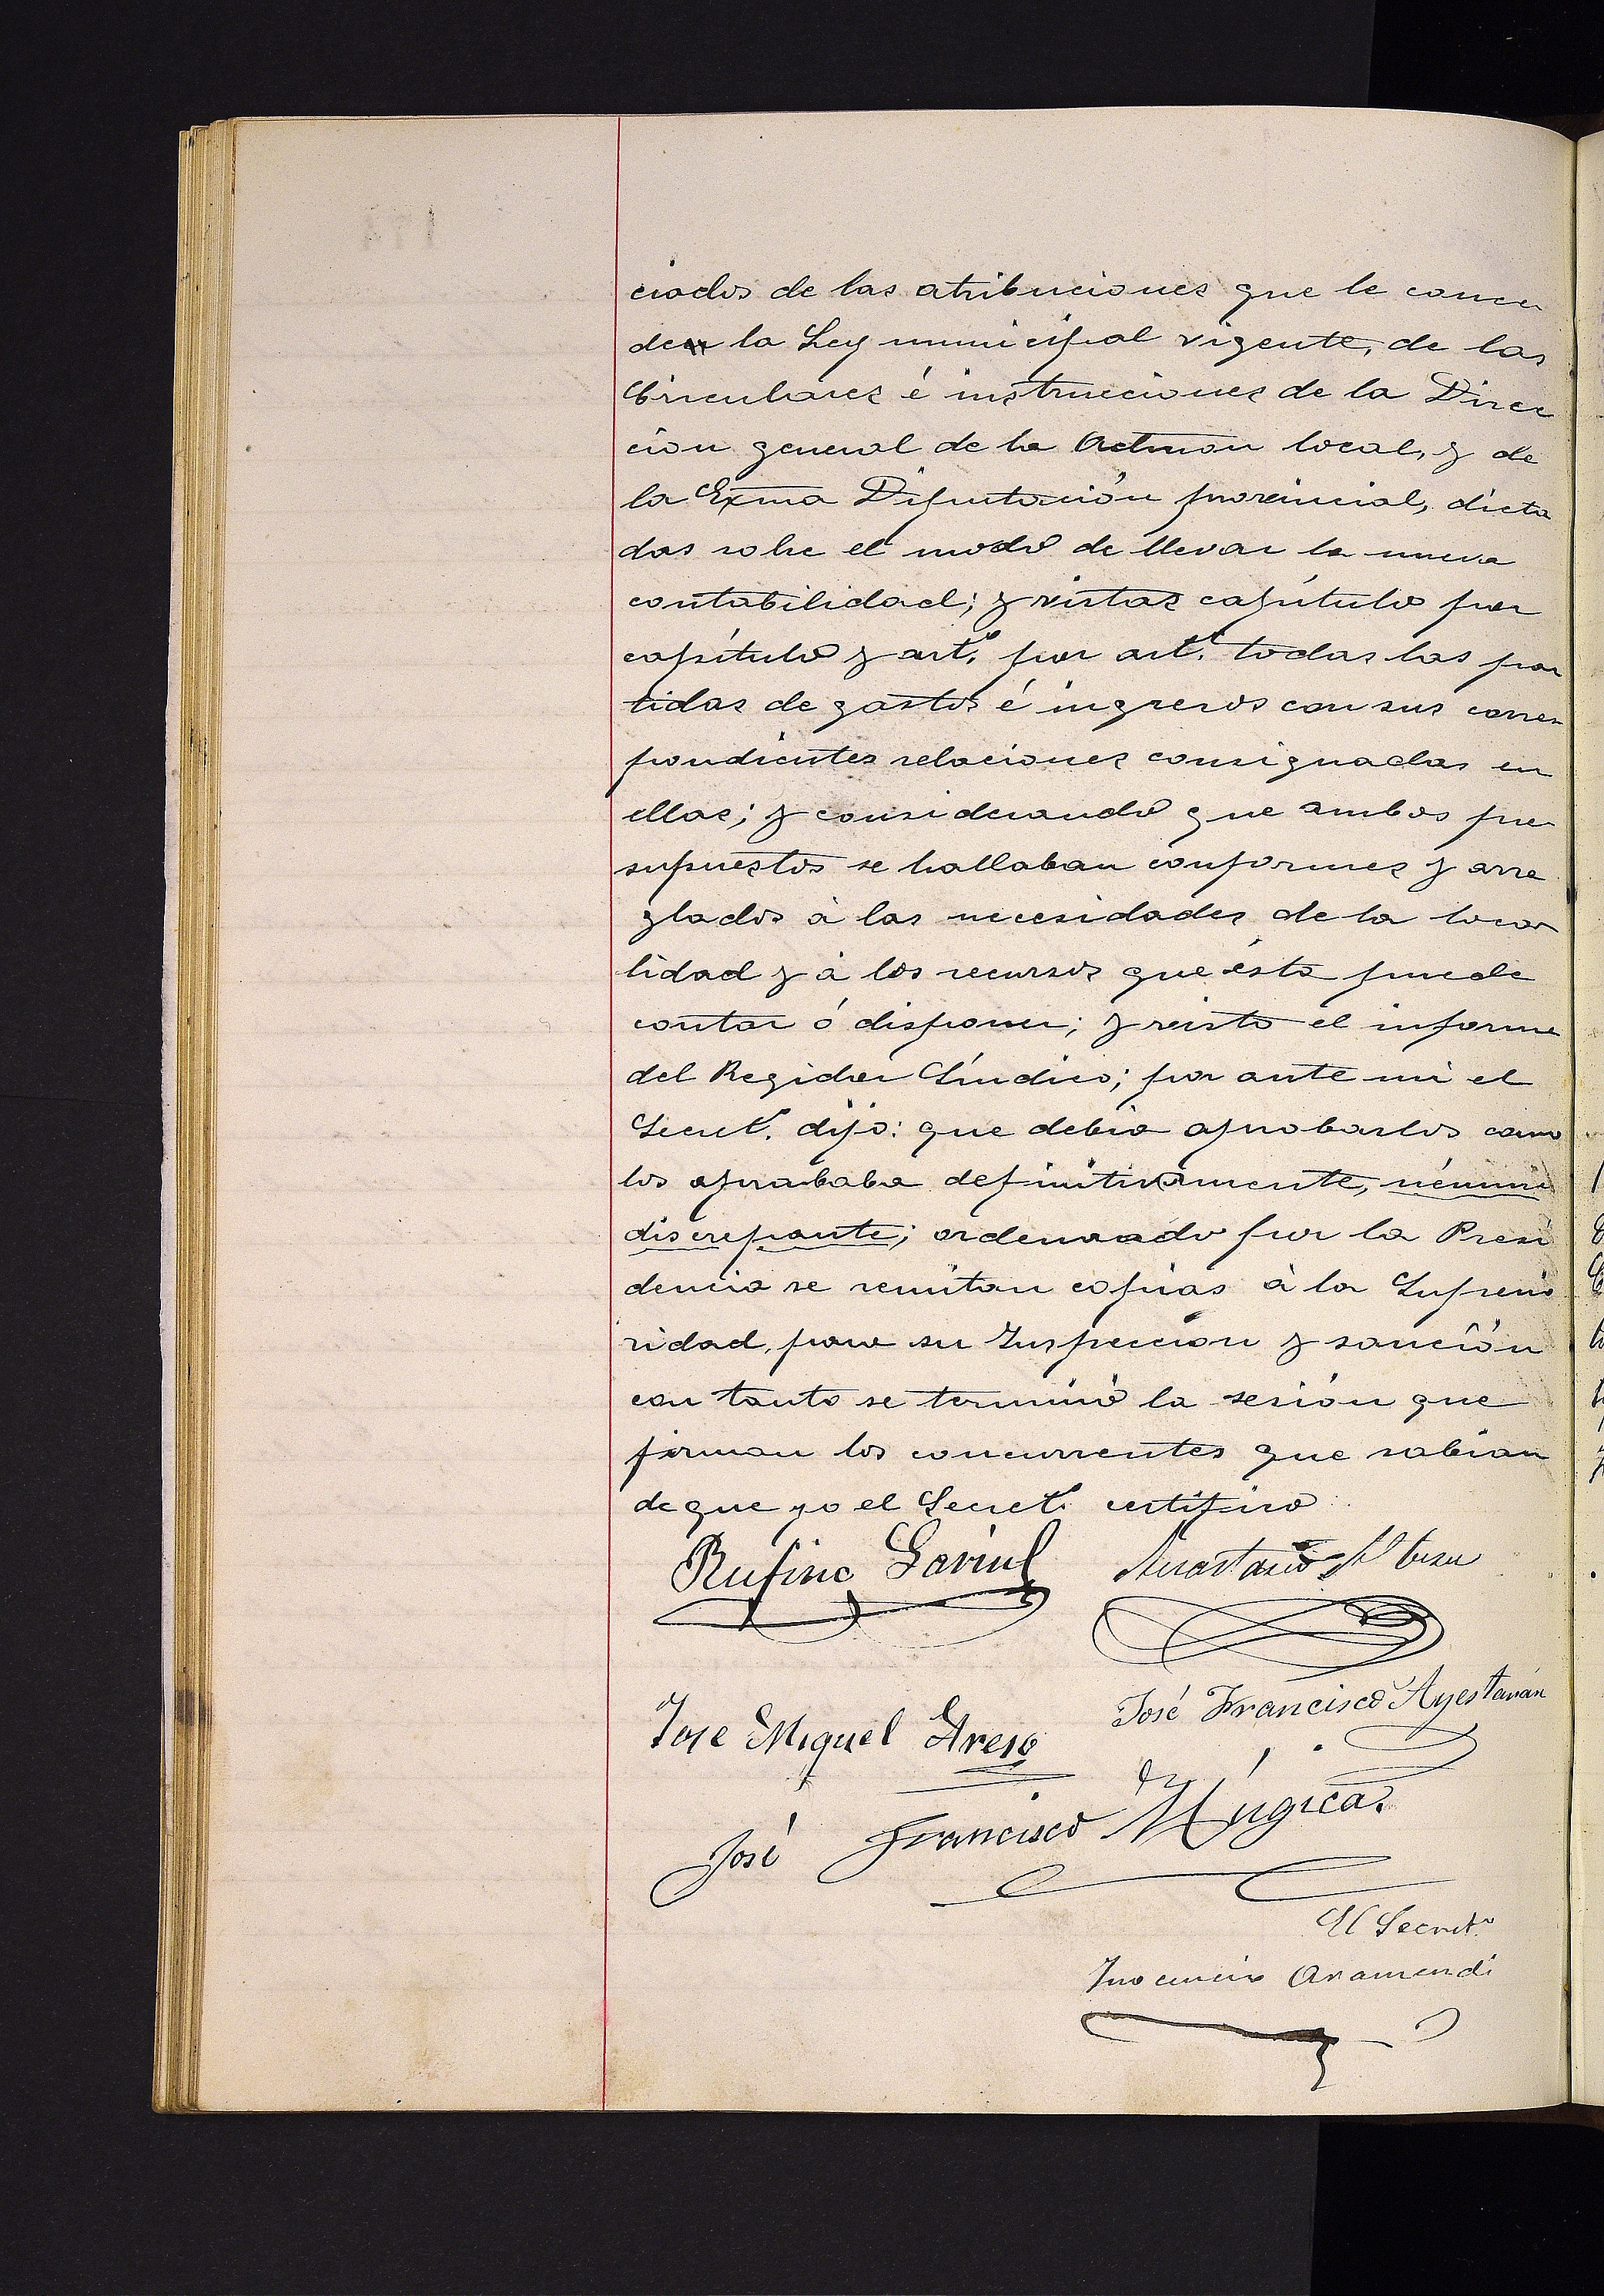 ciados de las atribuciones que le conce
den la Ley municipal vigente, de las
Circulares é instrucciones de la Direc
cion general de la Admon local, y de
la Exma Diputación provincial, dicta
das sobre el modo de llevar la nueva
contabilidad; y vistas capítulo por
capítulo y art.º por art.º todas las par
tidas de gastos é ingresos con sus corres
pondientes relaciones consignadas en
ellas; y considerando que ambos pre
supuestos se hallaban conformes y arre
glados à las necesidades de la loca
lidad y à los recursos que ésta puede
contar ó disponer; y visto el informe
del Regidor Síndico; por ante mi el
Secret.º dijo: que debia aprobarlos como
los aprobaba definitivamente, némine
discrepante; ordenando por la Presi
dencia se remitan copias à la Superio
ridad, para su Inspeccion y sanción
con tanto se terminó la sesión que
firman los concurrentes que sabian
de que yo el Secret.º certifico
Rufino Anastasio
José Francisco Ayestarán
Jose Miguel Areso
José Francisco Múgica
El Secret.º
Inocencio Aramendi